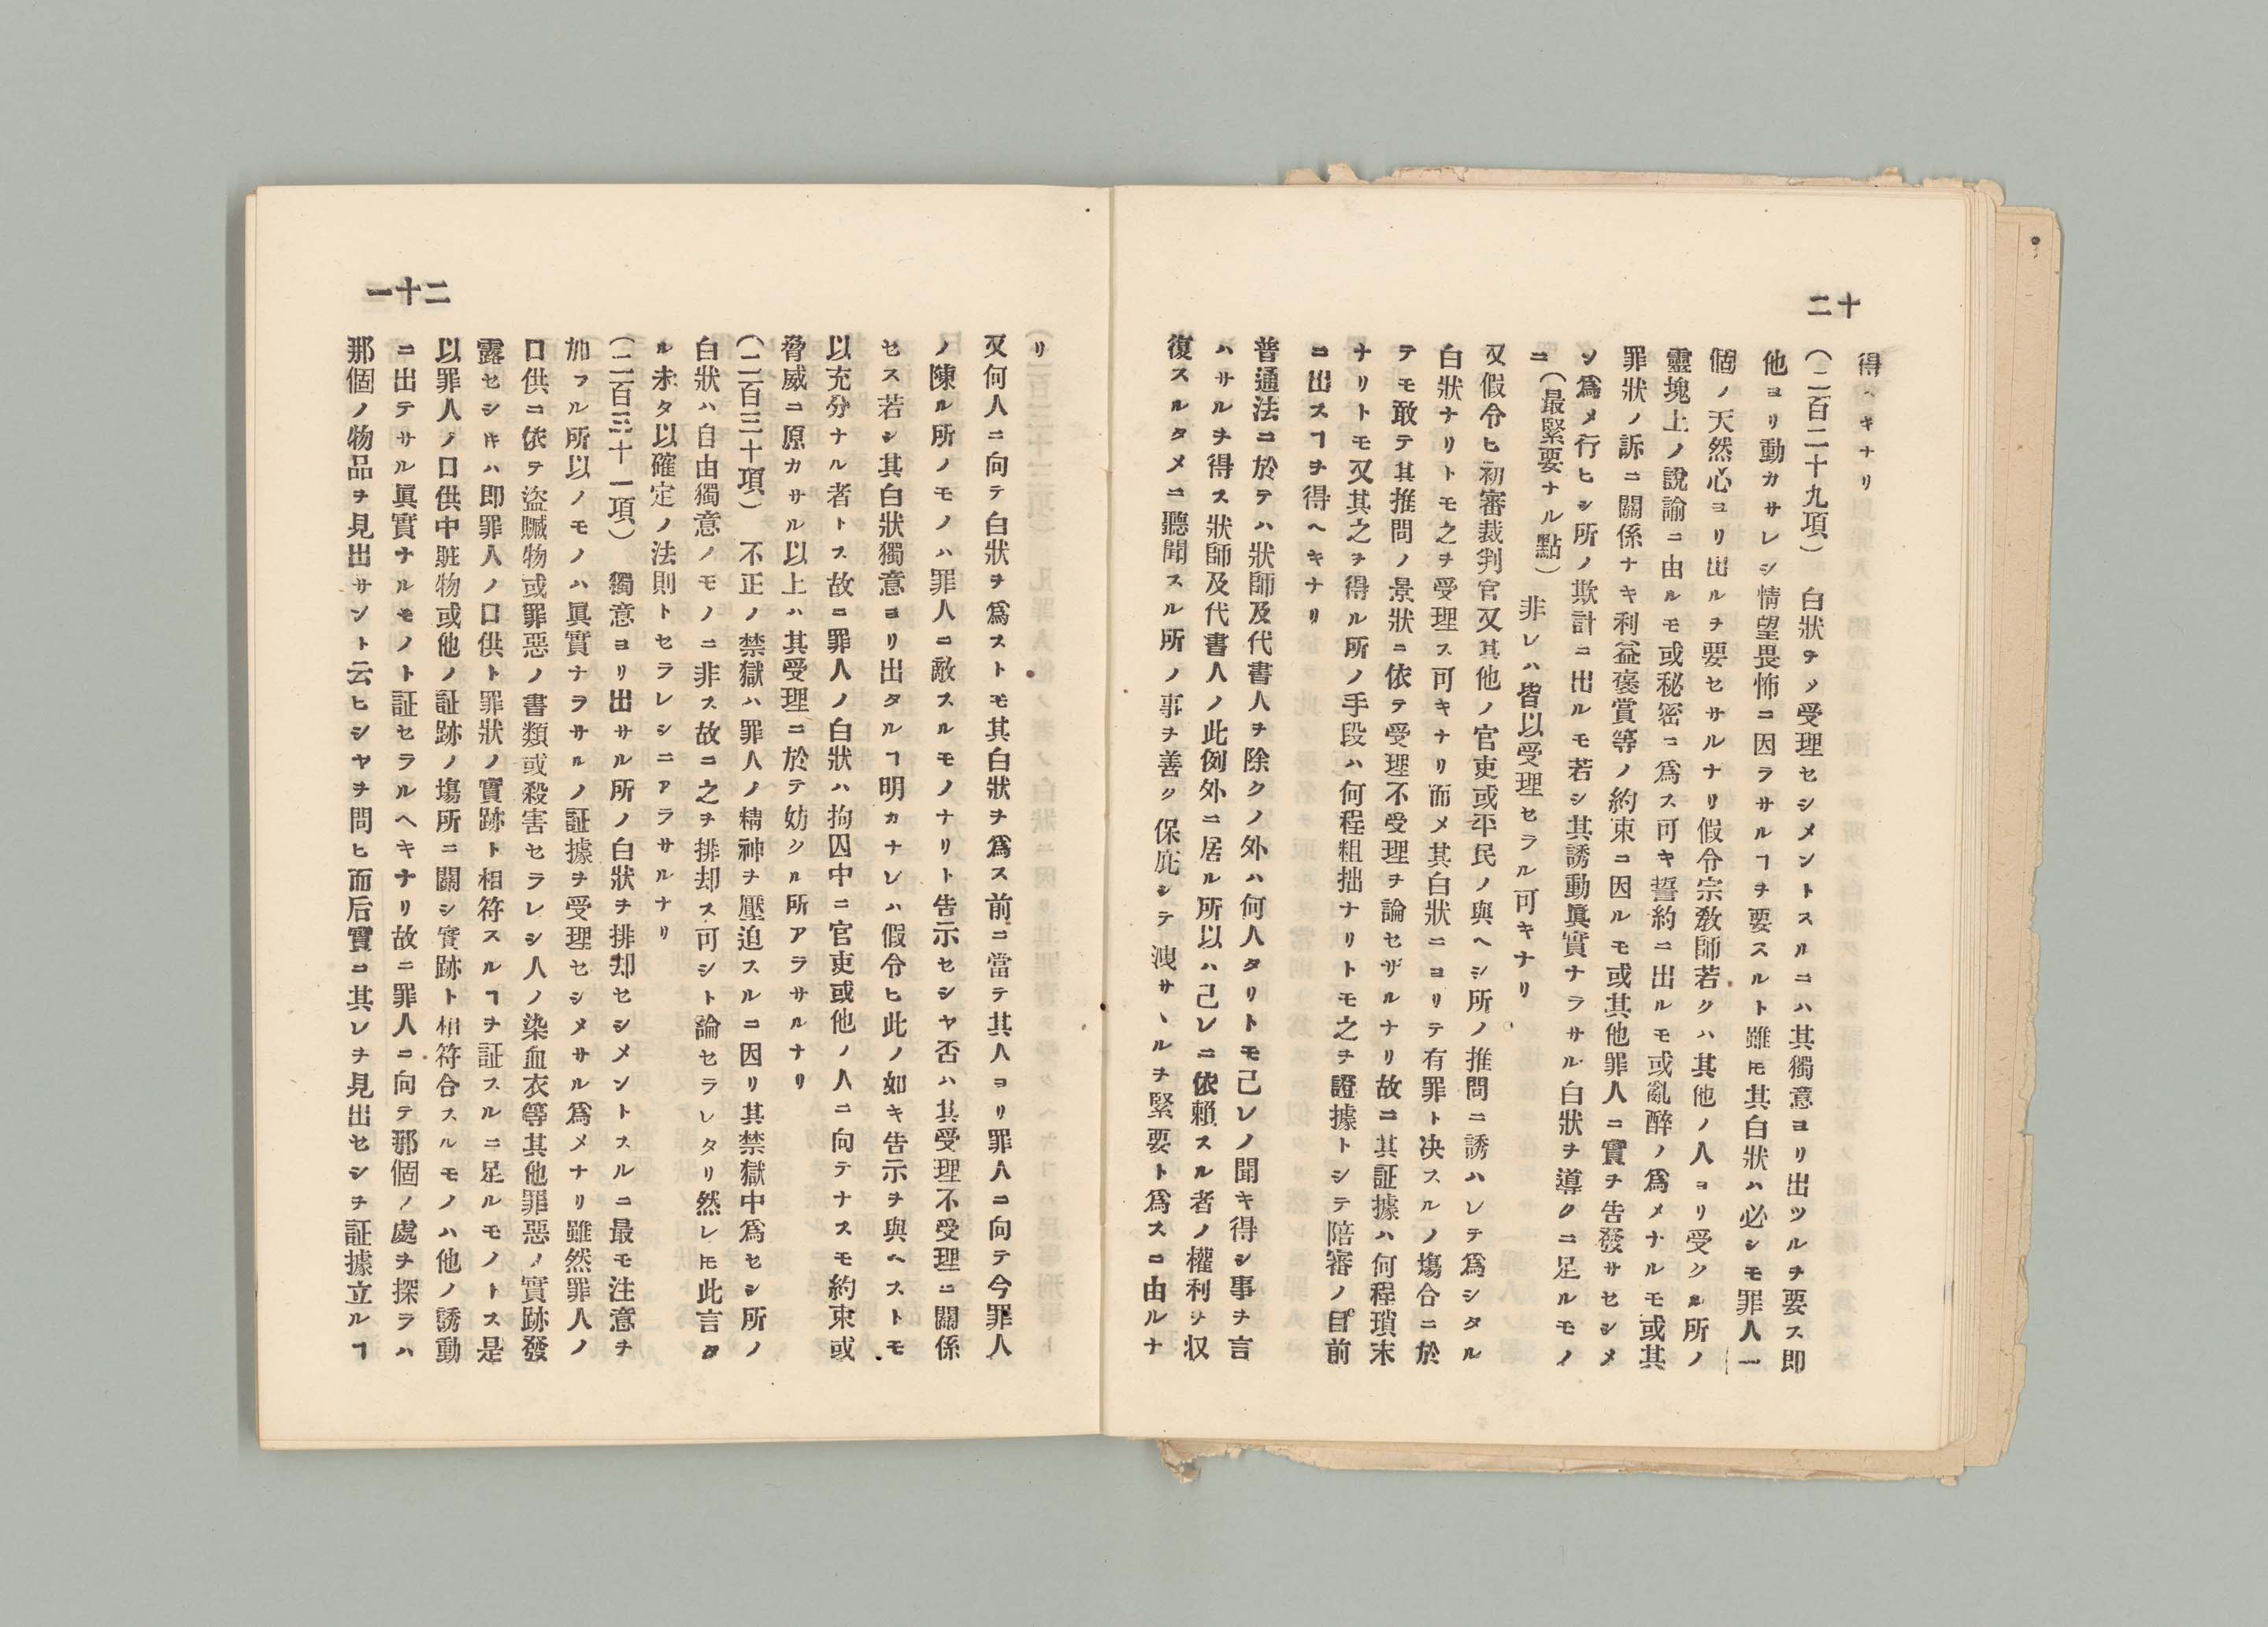 二十
得ヘキナリ
(二百二十九項)　白狀ヲノ受理セシメントスルニハ其獨意ヨリ出ツルヲ要ス即
他ヨリ動カサレシ情望畏怖ニ因ラサルヿヲ要スルト雖𪜈其白狀ハ必シモ罪人一
個ノ天然心ヨリ出ルヲ要セサルナリ假令宗敎師若クハ其他ノ人ヨリ受クル所ノ
靈塊上ノ說諭ニ由ルモ或秘密ニ爲ス可キ誓約ニ出ルモ或亂醉ノ爲メナルモ或其
罪狀ノ訴ニ關係ナキ利益褒賞等ノ約束ニ因ルモ或其他罪人ニ實ヲ告發サセシメ
シ爲メ行ヒシ所ノ欺計ニ出ルモ若シ其誘動眞實ナラサル白狀ヲ導クニ足ルモノ
ニ(最緊要ナル點)　非レハ皆以受理セラル可キナリ
又假令ヒ初審裁判官又其他ノ官吏或平民ノ與ヘシ所ノ推問ニ誘ハレテ爲シタル
白狀ナリトモ之ヲ受理ス可キナリ而メ其白狀ニヨリテ有罪ト决スルノ塲合ニ於
テモ敢テ其推問ノ景狀ニ依テ受理不受理ヲ論セザルナリ故ニ其証據ハ何程瑣末
ナリトモ又其之ヲ得ル所ノ手段ハ何程粗拙ナリトモ之ヲ證據トシテ陪審ノ目前
ニ出スヿヲ得ヘキナリ
普通法ニ於テハ狀師及代書人ヲ除クノ外ハ何人タリトモ己レノ聞キ得シ事ヲ言
ハサルヲ得ス狀師及代書人ノ此例外ニ居ル所以ハ己レニ依賴スル者ノ權利ヲ収
復スルタメニ聽聞スル所ノ事ヲ善ク保庇シテ洩サヽルヲ緊要ト爲スニ由ルナ
二十一
リ
又何人ニ向テ白狀ヲ爲ストモ其白狀ヲ爲ス前ニ當テ其人ヨリ罪人ニ向テ今罪人
ノ陳ル所ノモノハ罪人ニ敵スルモノナリト告示セシヤ否ハ其受理不受理ニ關係
セス若シ其白狀獨意ヨリ出タルヿ明カナレハ假令ヒ此ノ如キ告示ヲ與ヘストモ
以充分ナル者トス故ニ罪人ノ白狀ハ拘囚中ニ官吏或他ノ人ニ向テナスモ約束或
脅威ニ原カサル以上ハ其受理ニ於テ妨クル所アラサルナリ
(二百三十項)　不正ノ禁獄ハ罪人ノ精神ヲ壓迫スルニ因リ其禁獄中爲セシ所ノ
白狀ハ自由獨意ノモノニ非ス故ニ之ヲ排却ス可シト論セラレタリ然レ𪜈此言タ
ル未タ以確定ノ法則トセラレシニアラサルナリ
(二百三十一項)　獨意ヨリ出サル所ノ白狀ヲ排却セシメントスルニ最モ注意ヲ
加フル所以ノモノハ眞實ナヲサルノ証據ヲ受理セシメサル爲メナリ雖然罪人ノ
口供ニ依テ盜贓物或罪惡ノ書類或殺害セラレシ人ノ染血衣等其他罪惡ノ實跡發
露セシ𪜈ハ即罪人ノ口供ト罪狀ノ實跡ト相符スルヿヲ証スルニ足ルモノトス是
以罪人ノ口供中贓物或他ノ証跡ノ塲所ニ關シ實跡ト相符合スルモノハ他ノ誘動
ニ出テサル眞實ナルモノト証セラルヘキナリ故ニ罪人ニ向テ那個ノ處ヲ探ラハ
那個ノ物品ヲ見出サント云ヒシヤヲ問ヒ而后實ニ其レヲ見出セシヲ証據立ルヿ